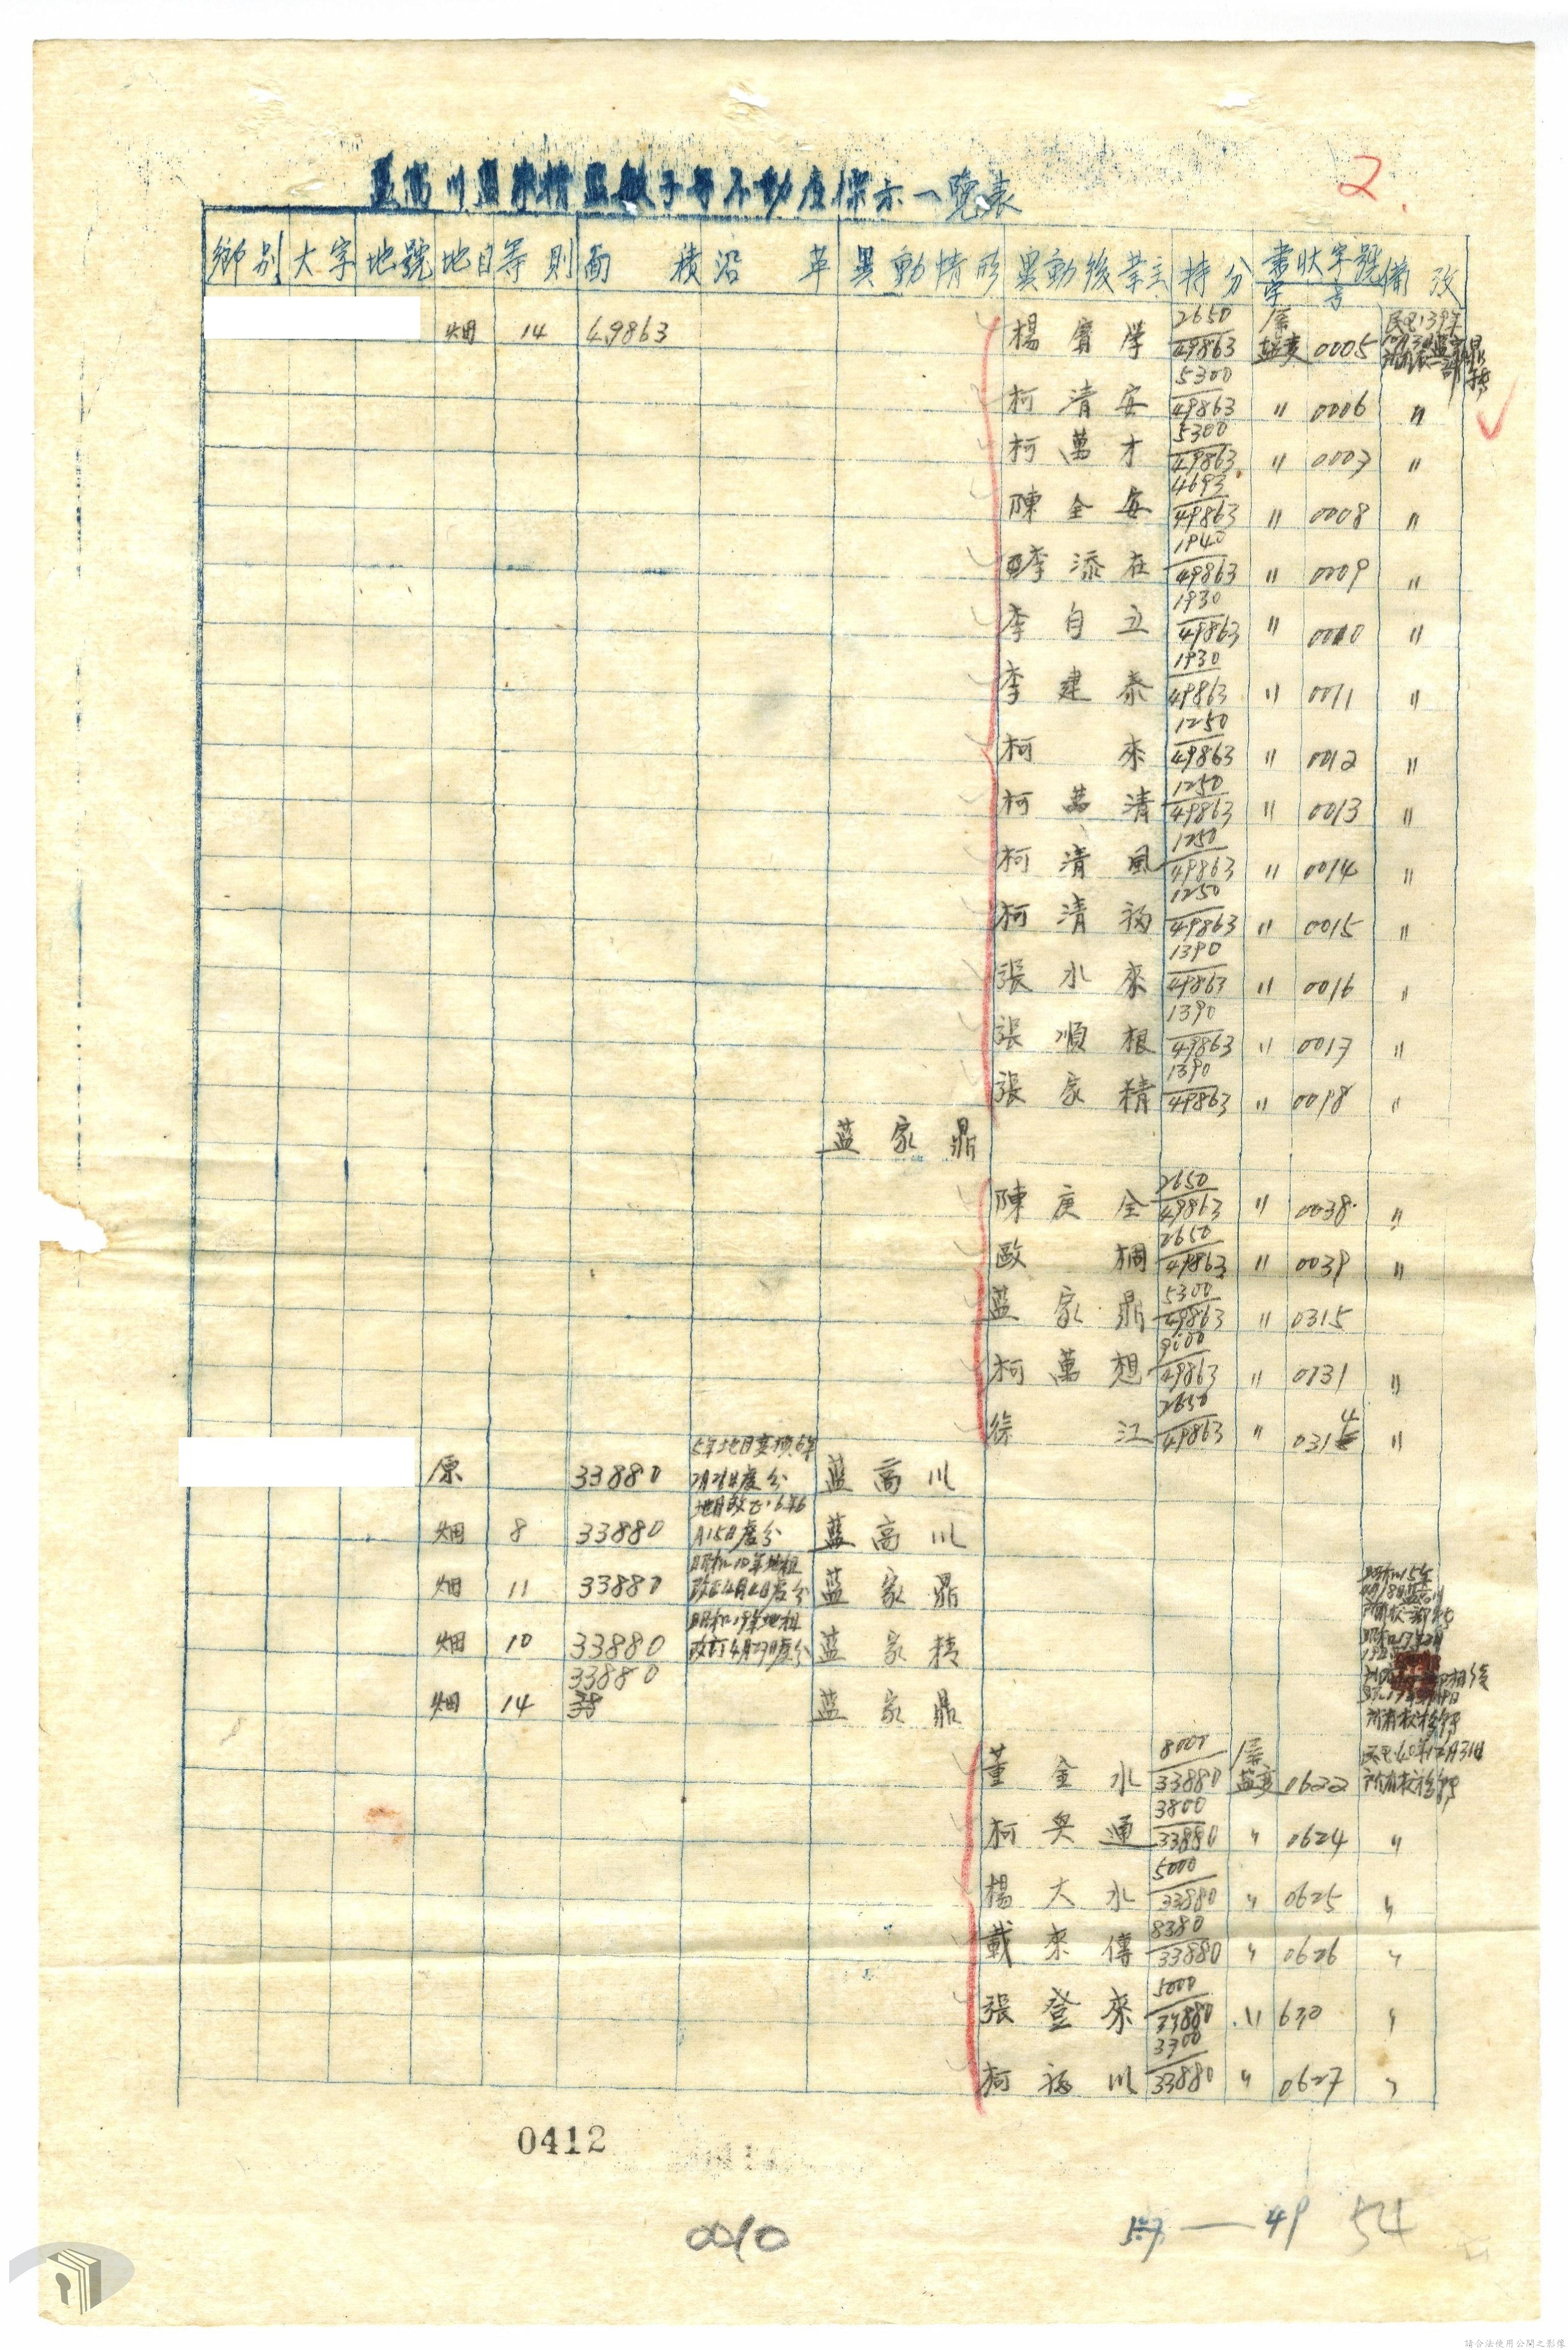 藍高川藍家精藍敏子等不動產標示一覽表
2.
鄉別 大字 地號 地目 等則 面積 沿革 異動情形 異動後業主 持分 書狀字號 字 号 備攷
畑 14 4.9863 楊實學 2650/49863 0005
柯清安 5300/49863 〃 0006 〃
柯萬才 5300/49863 〃 0007 〃
陳全安 4693/49863 〃 0008 〃
李添在 1940/49863 〃 0009 〃
李自立 1930/49863 〃 0010 〃
李建泰 1930/49863 〃 0011 〃
柯來 1250/49863 〃 0012 〃
柯萬清 1250/49863 〃 0013 〃
柯清風 1250/49863 〃 0014 〃
柯清福 1250/49863 〃 0015 〃
張水來 1390/49863 〃 0016 〃
張順根 1390/49863 〃 0017 〃
張家精 1390/49863 〃 〃
藍家鼎
陳庚全 2650/49863 〃 0038 〃
歐 2650/49863 〃 0039 〃
藍家鼎 5300/49863 〃 0315
柯萬想 /49863 〃 〃
徐江 2650/49863 〃 0314 〃
原 33880 藍高川
畑 8 33880 藍高川
畑 11 33880 昭和10年地租改正4月4日度分 藍家鼎
畑 10 33880 昭和19年地租改訂4月29日度分 藍家精
33880
畑 14 藍家鼎
董金水 8000/33880 0622 民國40年12月31日所有權移轉
柯奥通 3800/33880 〃 0624 〃
楊大水 5000/33880 〃 0625 〃
戴來傳 8380/33880 〃 0626 〃
張登來 5000/33880 〃 630 〃
柯福川 /33880 〃 0627 〃
0412
0010
49 54
請合法使用公開之影像